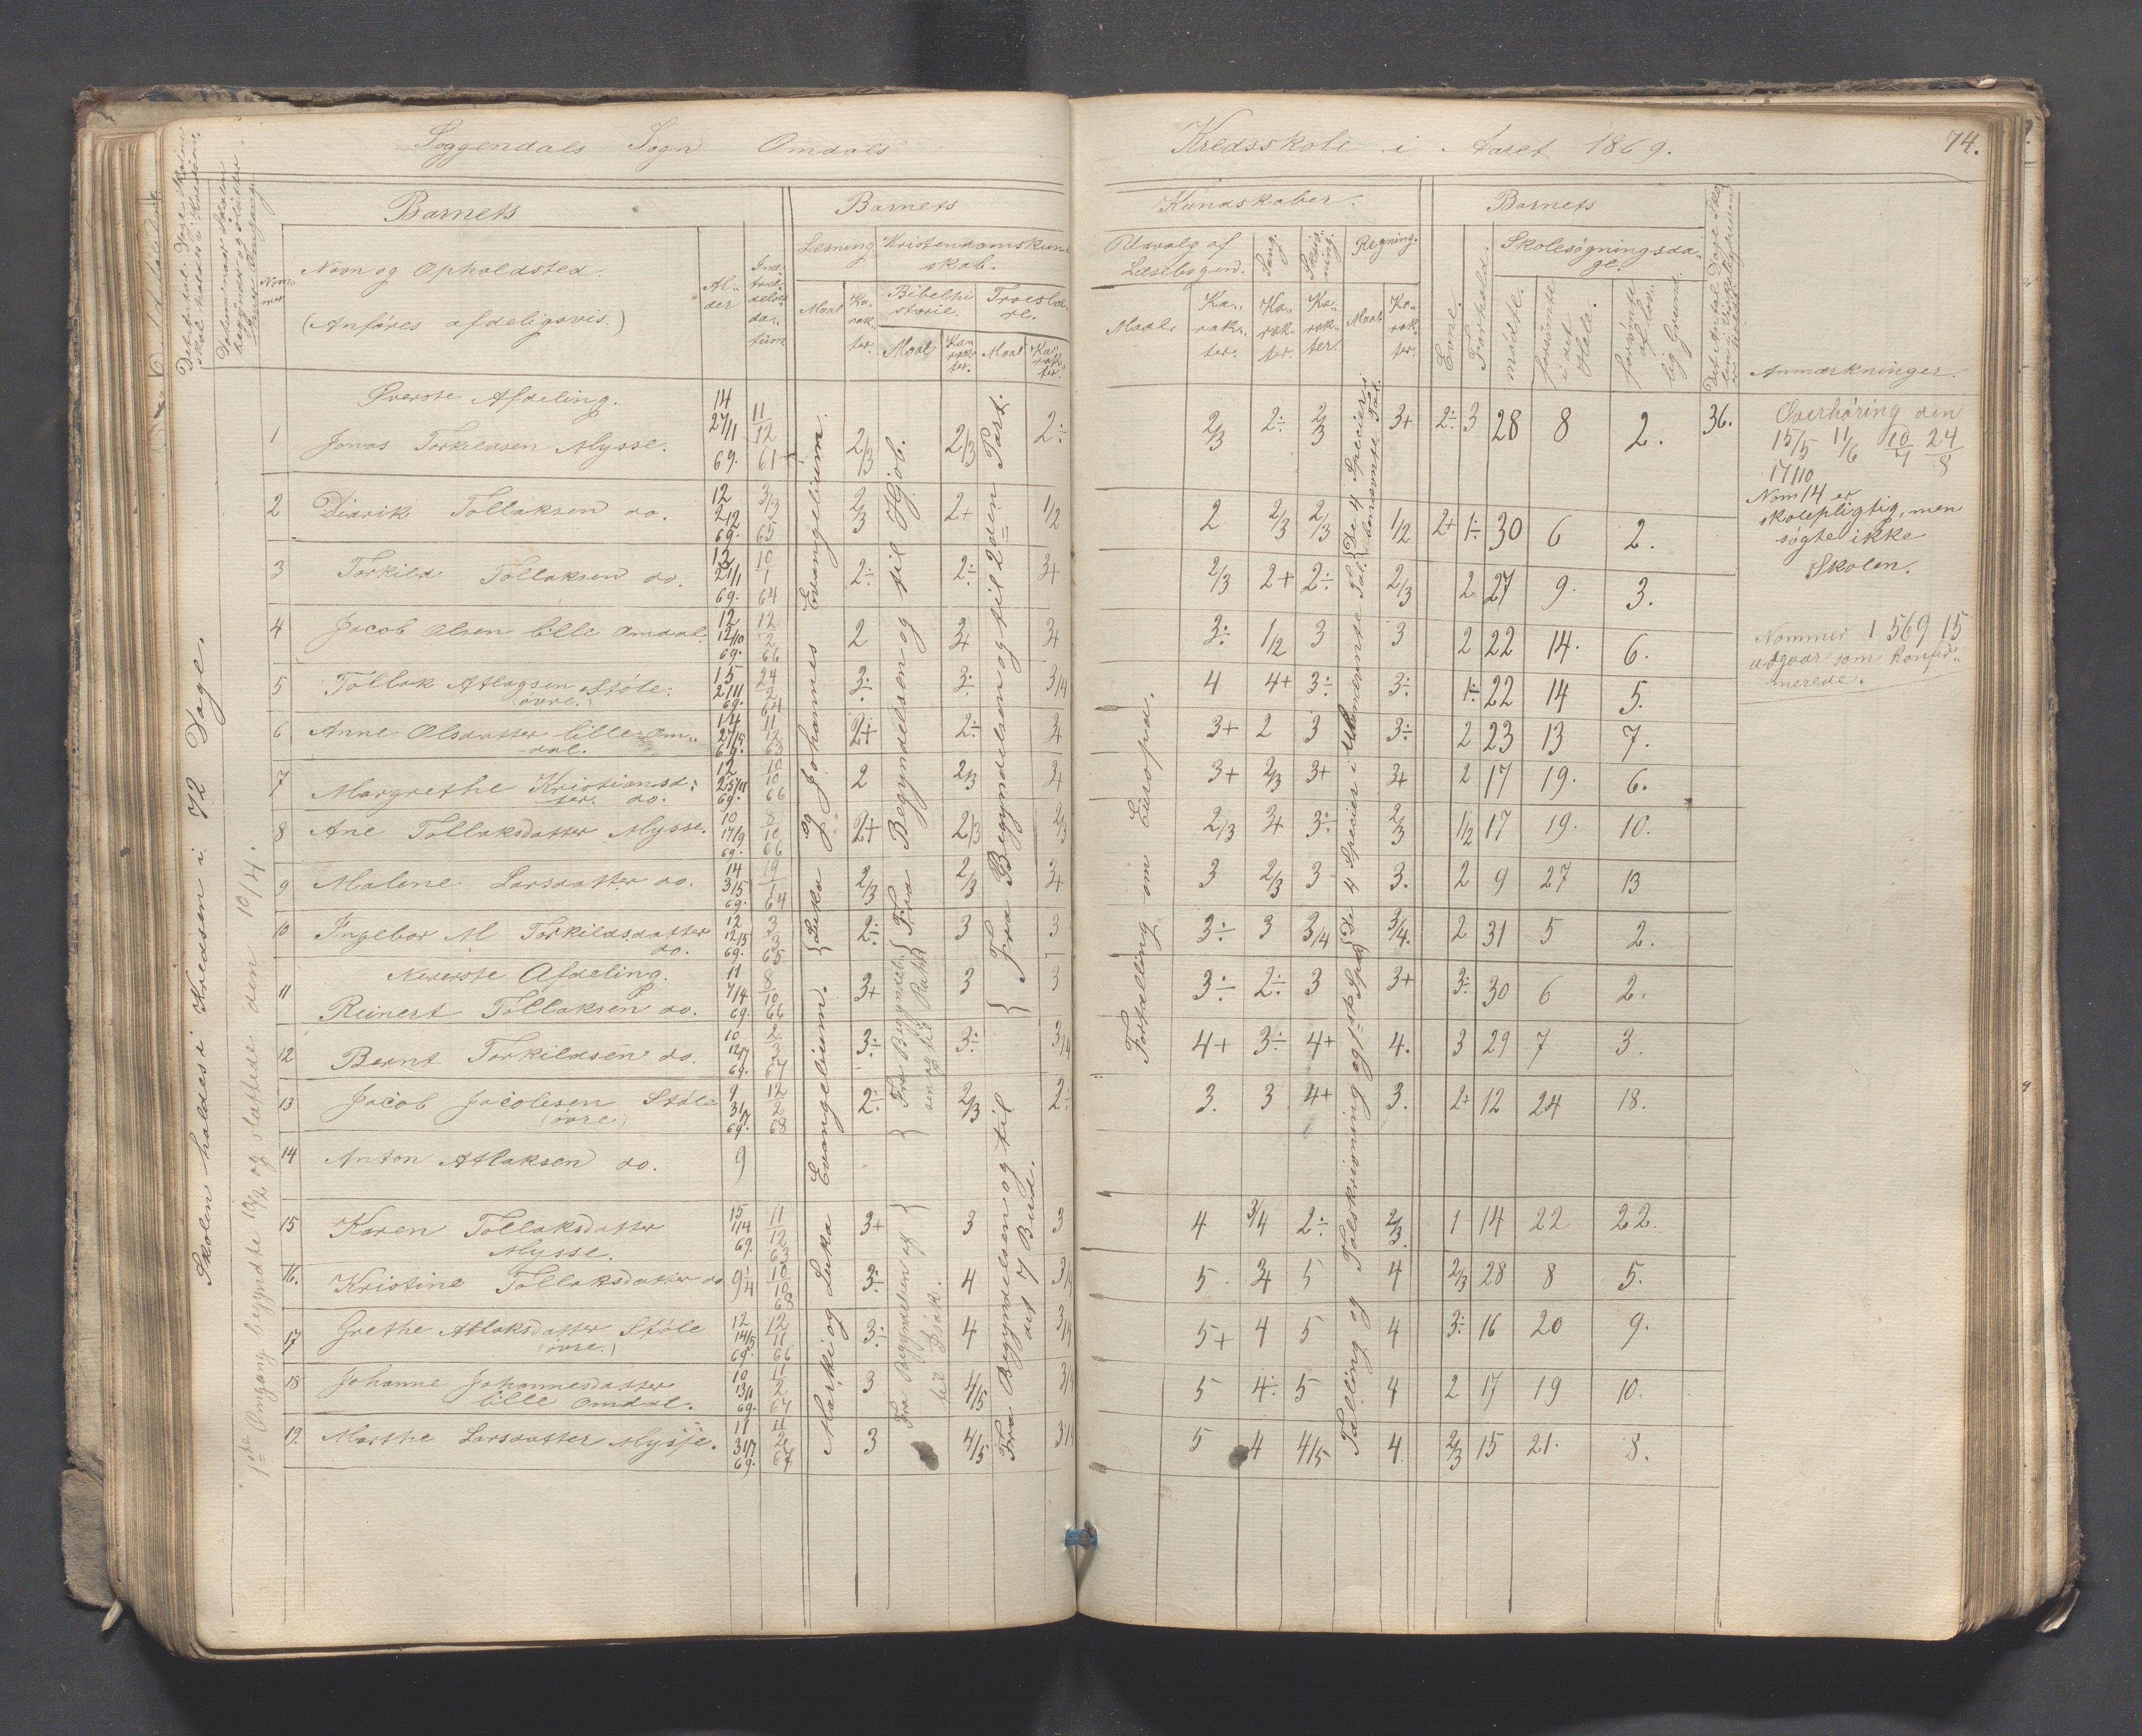 Soggendals Sogn Omdals Kredsskole i Aaret 1869. 74.
Skolen holdes i Kredsen i 72 Dage.
1ste Omgang begyndte 19/2 og sluttede den 10/4.
Barnets
Nom-
mer
Navn og Opholdssted.
(Anføres afdeligsvis.)
Al-
der
Ind-
træd-
delses
da-
tum
Barnets Kundskaber.
Læsning
Maal
Ka-
rak-
ter.
Kristendomskund-
skab.
Bibelhi
storie.
Maal
Ka-
rak-
ter.
Troeslæ-
re.
Maal
Ka-
rak-
ter.
Udvalg af
Læsebogen.
Maal.
Ka-
rak-
ter.
Sang.
Ka-
rak-
ter.
Skriv-
ning.
Ka-
rak-
ter.
Regning.
Maal
Ka-
rak-
ter.
Barnets
Evne.
Forhold.
Skolesøgningsda-
ge.
mødte.
forsømte
i det
Hele.
forsømte
af lov-
lig Grund.
Anmærkninger.
Øverste Afdeling.
1 Jonas Torkildsen Mysse. 14 27/11 69. 11/12 61 2/3 2/3 2÷ 2/3 2÷ 2/3 3+ 2÷ 3 28 8 2. 36.
2 Didrik Tollaksen do. 12 2/12 69. 3/3 65 2/3 2+ 1/2 2 2/3 2/3 1/2 2+ 1÷ 30 6 2.
3 Torkild Tollaksen do. 13 21/1 69. 10/1 64 2÷ 2÷ 3+ 2/3 2+ 2÷ 2/3 2 27 9. 3.
4 Jacob Olsen lille Omdal. 12 12/10 69. 12/2 66 2 3+ 3+ 3÷ 1/2 3 3 2 22 14. 6.
5 Tollak Atlagsen Støle. 15 2/11 69. 24/2 64 3÷ 3÷ 3/4 4 4+ 3÷ 3÷ 1÷ 22 14 5.
(øvre.)
6 Anne Olsdatter lille Om- 14 27/5 69. 11/12 63 2+ 2÷ 3+ 3+ 2 3 3÷ 2 23 13 7.
dal.
7 Margrethe Kristiansd: 12 25/11 69. 10/10 66 2 2/3 3+ 3+ 2/3 3+ 3+ 2 17 19. 6.
ter. do.
8 Ane Tollaksdatter Mysse. 10 17/9 69. 8/10 66 2+ 2/3 2/3 2/3 3+ 3÷ 2/3 1/2 17 19. 10.
9 Malene Larsdatter do. 14 3/5 69. 19/1 64 2/3 2/3 3+ 3 2/3 3 3. 2 9 27 13
10 Ingebor M Torkildsdatter 12 12/5 69. 3/3 65 2÷ 3 3 3÷ 3 3/4 3/4. 2 31 5 2.
do.
Nederste Afdeling.
11 Reinert Tollaksen do. 11 7/4 69. 8/10 66 3+ 3 3 3÷ 2÷ 3 3+ 3÷ 30 6 2.
12 Bernt Torkildsen do. 10 12/7 69. 2/3 67 3÷ 3÷ 3/4 4+ 3÷ 4+ 4. 3 29 7 3.
13 Jacob Jacobsen Støle 9 3/7 69. 12/2 68 2÷ 2/3 2÷ 3. 3 4+ 3. 2+ 12 24 18.
(øvre)
14 Anton Atlaksen do. 9
15 Karen Tollaksdatter 15 1/4 69. 11/12 63 3+ 3 3 4 3/4 2÷ 2/3. 1 14 22 22.
Mysse.
16. Kristine Tollaksdatter do 9 1/4 10/10 68 3÷ 4 3/4 5. 3+ 5 4 2/3 28 8 5.
17 Grethe Atlaksdatter Støle 12 14/5 69. 12/11 66 3÷ 4 3/4 5+ 4 5 4 3÷ 16 20 9.
(øvre.)
18 Johanne Johannesdatter 10 13/1 69. 11/2 67 3 4/5 3/4 5 4÷ 5 4 2 17 19 10.
lille Omdal.
19. Marthe Larsdatter Mysse. 11 31/7 69. 11/2 67 3 4/5 3/4 5 4 4/5 4 2/3 15 21. 8.
Luka og Johannes Evangelium.
Marki og Luka Evangelium.
Fra Begyndelsen og til Hjob.
Fra Begyndel-
sen og til Ruth
Fra Begyndelsen af
til Isak.
Fra Begyndelsen og til 2den Part.
Fra Begyndelsen og til
det 7 Bud.
Fortælling om Europa.
De 4 Specier i
benævnte Tal.
De 4 Specier i ubenævnte Tal.
Tælling og Talskrivning og 1ste Spec
Overhøring den
15/5 11/6 10/7 24/8
17/10
Nom 14 er
skolepligtig, men
søgte ikke
Skolen.
Nommer 1 5 6 9 15
udgaar som konfir-
merede.